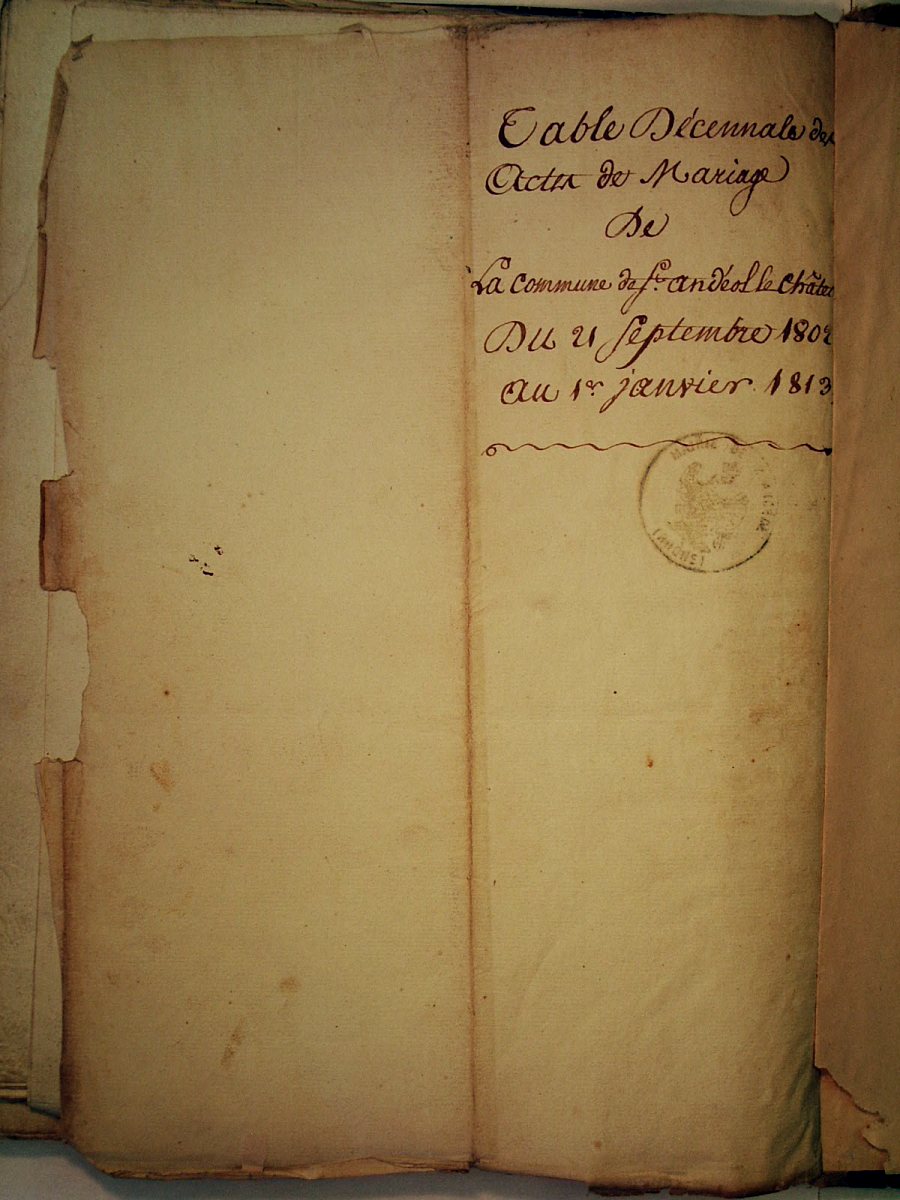 Table Décennale des
Actes de Mariage
De
La commune de St. andéol le châtea
Du 21 Septembre 1802
au 1er janvier 1813
MAIRIE DE
(RHÔNE)